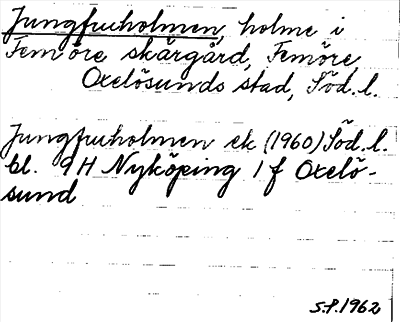 Jungfruholmen, holme i
Femöre skärgård, Femöre,
Oxelösunds stad, Söd. l.
Jungfruholmen ek (1960) Söd. l.
bl. 9H Nyköping 1 f Oxelö-
sund
S.P. 1962